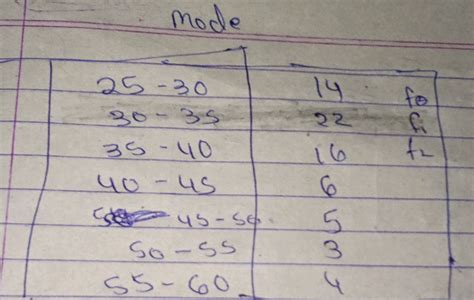 Mode
25-30 14 f0
30-35 22 f1
35-40 16 f2
40-45 6
45-50 5
50-55 3
55-60 4